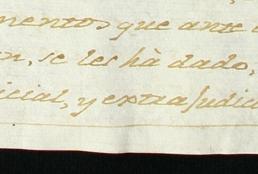 mentos que ante
n, se les hà dado,
icial, y extra Judic